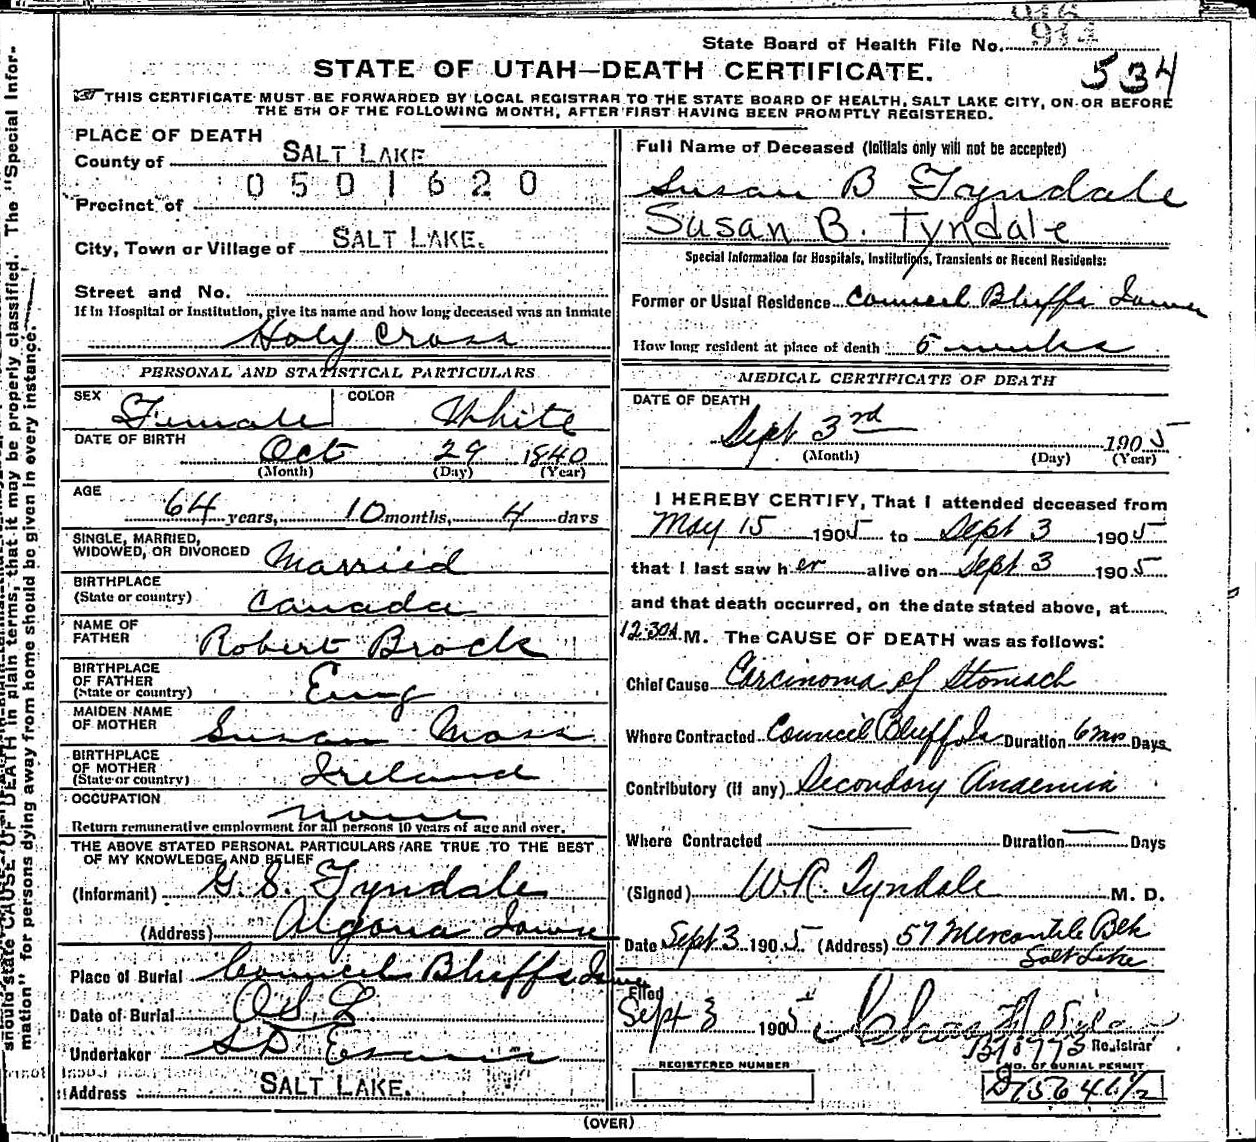 914
State Board of Health File No.
STATE OF UTAH—DEATH CERTIFICATE. 534
THIS CERTIFICATE MUST BE FORWARDED BY LOCAL REGISTRAR TO THE STATE BOARD OF HEALTH, SALT LAKE CITY, ON OR BEFORE
THE 5TH OF THE FOLLOWING MONTH, AFTER FIRST HAVING BEEN PROMPTLY REGISTERED.
PLACE OF DEATH
County of SALT LAKE
0501620
Precinct of
City, Town or Village of SALT LAKE.
Street and No.
If in Hospital or Institution, give its name and how long deceased was an inmate
Holy Cross
PERSONAL AND STATISTICAL PARTICULARS
SEX Female COLOR White
DATE OF BIRTH Oct 29 1840
(Month) (Day) (Year)
AGE
64 years, 10 months, 4 days
SINGLE, MARRIED,
WIDOWED, OR DIVORCED Married
BIRTHPLACE
(State or country) Canada
NAME OF
FATHER Robert Brock
BIRTHPLACE
OF FATHER
(State or country) Eng
MAIDEN NAME
OF MOTHER Susan Moss
BIRTHPLACE
OF MOTHER
(State or country) Ireland
OCCUPATION none
Return remunerative employment for all persons 10 years of age and over.
THE ABOVE STATED PERSONAL PARTICULARS ARE TRUE TO THE BEST
OF MY KNOWLEDGE AND BELIEF
(Informant) G. S. Tyndale
(Address) Algona Iowa
Place of Burial Council Bluffs Iowa
Date of Burial O S L
Undertaker S D Evans
Address SALT LAKE.
Full Name of Deceased (Initials only will not be accepted)
Susan B Tyndale
Susan B. Tyndale
Special Information for Hospitals, Institutions, Transients or Recent Residents:
Former or Usual Residence Council Bluffs Iowa
How long resident at place of death 5 weeks
MEDICAL CERTIFICATE OF DEATH
DATE OF DEATH
Sept 3rd 1905
(Month) (Day) (Year)
I HEREBY CERTIFY, That I attended deceased from
May 15 1905 to Sept 3 1905
that I last saw her alive on Sept 3 1905
and that death occurred, on the date stated above, at
12.30A.M. The CAUSE OF DEATH was as follows:
Chief Cause Carcinoma of Stomach
Where Contracted Council Bluffs Ia Duration 6 mos Days
Contributory (if any) Secondary Anaemia
Where Contracted — Duration — Days
(Signed) W R. Tyndale M. D.
Date Sept 3 1905 (Address) 57 Mercantile Blk
Salt Lake
Filed
Sept 3 1905
Registrar
REGISTERED NUMBER
NO. OF BURIAL PERMIT
(OVER)
should state CAUSE OF DEATH in plain terms, that it may be properly classified. The "Special Infor-
mation" for persons dying away from home should be given in every instance.